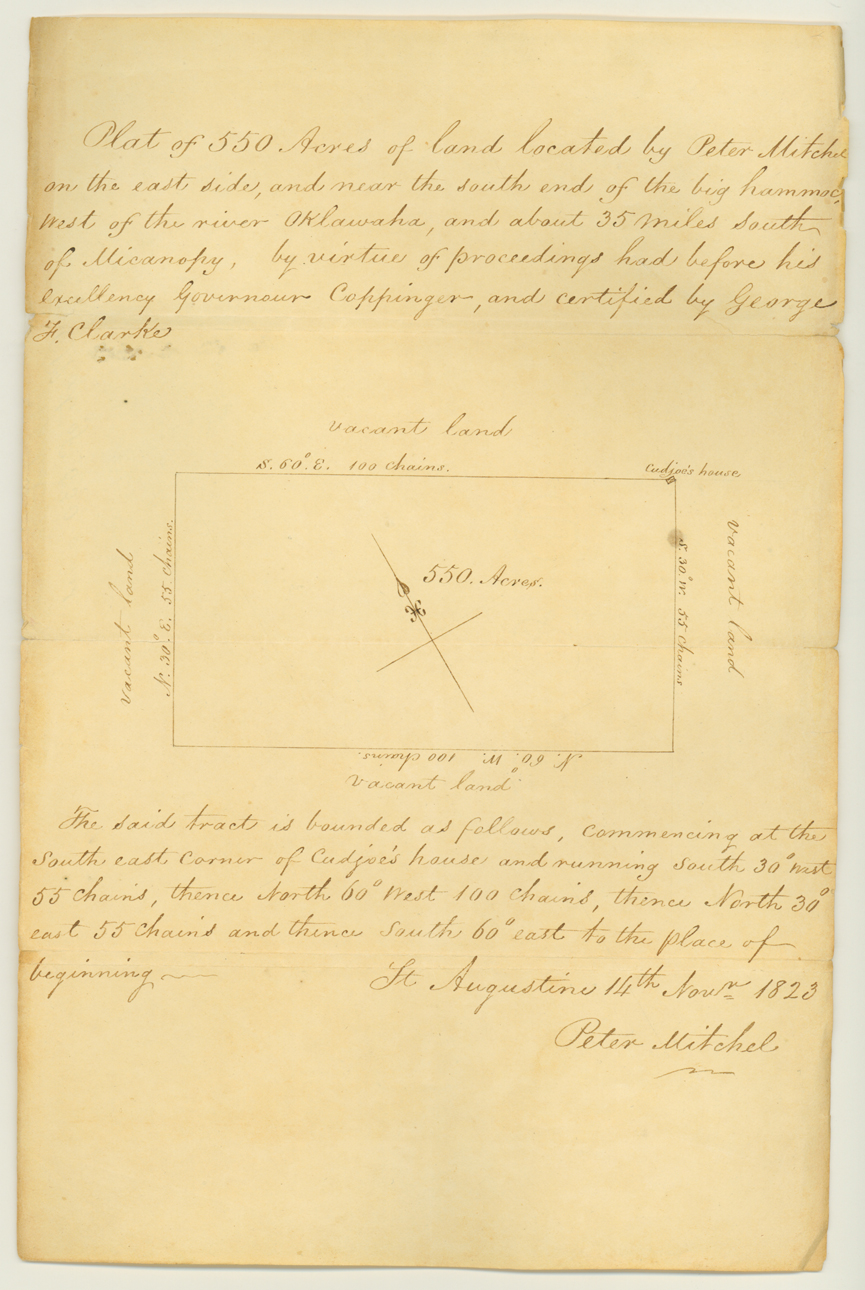 Plat of 550 Acres of land located by Peter Mitchel
on the east side, and near the south end of the big hammoc,
West of the river Oklawaha, and about 35 miles South
of Micanopy, by virtue of proceedings had before his
excellency Governour Coppinger, and certified by George
F. Clarke
vacant land
S. 60° E. 100 chains.
Cudjoe's house
vacant land
N. 30° E. 55 chains.
550. Acres.
S. 30° W. 55 chains
vacant land
N. 60° W. 100 chains.
vacant land
The said tract is bounded as follows, commencing at the
South east corner of Cudjoe's house and running South 30° West
55 chains, thence North 60° West 100 chains, thence North 30°
east 55 chains and thence South 60° east to the place of
beginning
St Augustine 14th Novr 1823
Peter Mitchel